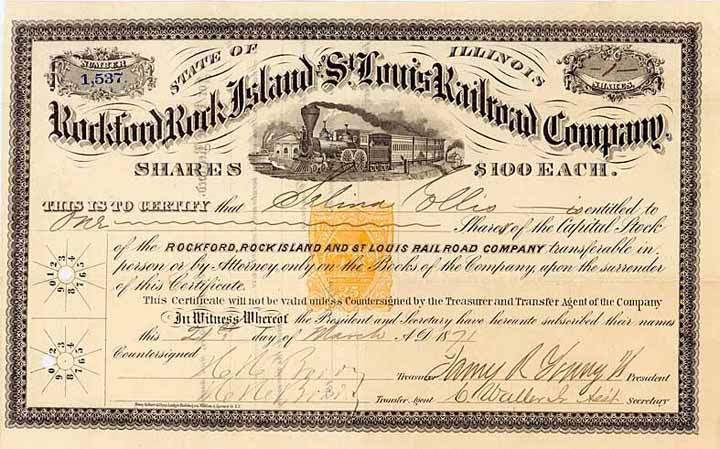 NUMBER
1,537
STATE OF ILLINOIS
1
SHARES
Rockford Rock Island and St Louis Railroad Company.
SHARES $100 EACH.
THIS IS TO CERTIFY that Selina Ollis is entitled to
One Shares of the Capital Stock
of the ROCKFORD, ROCK ISLAND AND ST LOUIS RAILROAD COMPANY transferable in
person or by Attorney, only on the Books of the Company, upon the surrender
of this Certificate.
This Certificate will not be valid unless Countersigned by the Treasurer and Transfer Agent of the Company
In Witness Whereof the President and Secretary have hereunto subscribed their names
this day of March A.D. 1871
Countersigned
Treasurer President
Transfer Agent Secretary
25
0 1 2 3 4 5 6 7 8 9
0 1 2 3 4 5 6 7 8 9